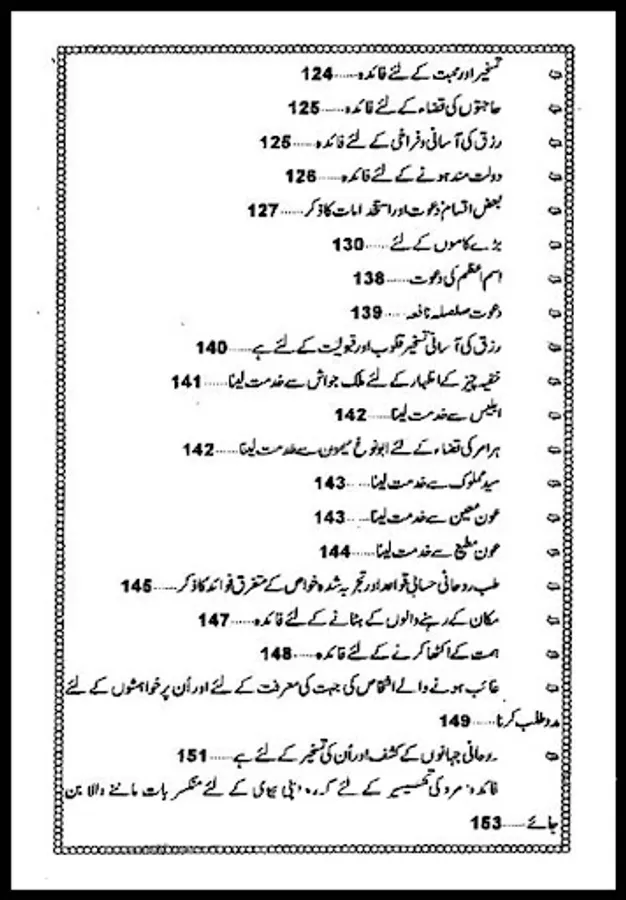 تسخیر اور محبت کے لئے فائدہ.....124
حاجتوں کی قضاء کے لئے فائدہ.....125
رزق کی آسانی و فراخی کے لئے فائدہ.....125
دولت مند ہونے کے لئے فائدہ.....126
بعض اقسام دعوت اور استخدامات کا ذکر.....127
بڑے کاموں کے لئے.....130
اسم اعظم کی دعوت.....138
دعوت صلصلہ نافعہ.....139
رزق کی آسانی تسخیر قلوب اور قبولیت کے لئے ہے.....140
خفیہ چیز کے اظہار کے لئے ملک جواش سے خدمت لینا.....141
ابلیس سے خدمت لینا.....142
ہر امر کی قضاء کے لئے ابو نوخ میمون سے خدمت لینا.....142
سید مملوک سے خدمت لینا.....143
عون معین سے خدمت لینا.....143
عون مطیع سے خدمت لینا.....144
طب روحانی حسابی قواعد اور تجربہ شدہ خواص کے متفرق فوائد کا ذکر.....145
مکان کے رہنے والوں کے ہٹانے کے لئے فائدہ.....147
ہمت کے اکٹھا کرنے کے لئے فائدہ.....148
غائب ہونے والے اشخاص کی جہت کی معرفت کے لئے اور اُن پر خواہشوں کے لئے
مدد طلب کرنا.....149
روحانی جہانوں کے کشف اور اُن کی تسخیر کے لئے ہے.....151
فائدہ مرد کی تسخیر کے لئے کہ وہ اپنی بیوی کے لئے منکسر بات ماننے والا بن
جائے.....153